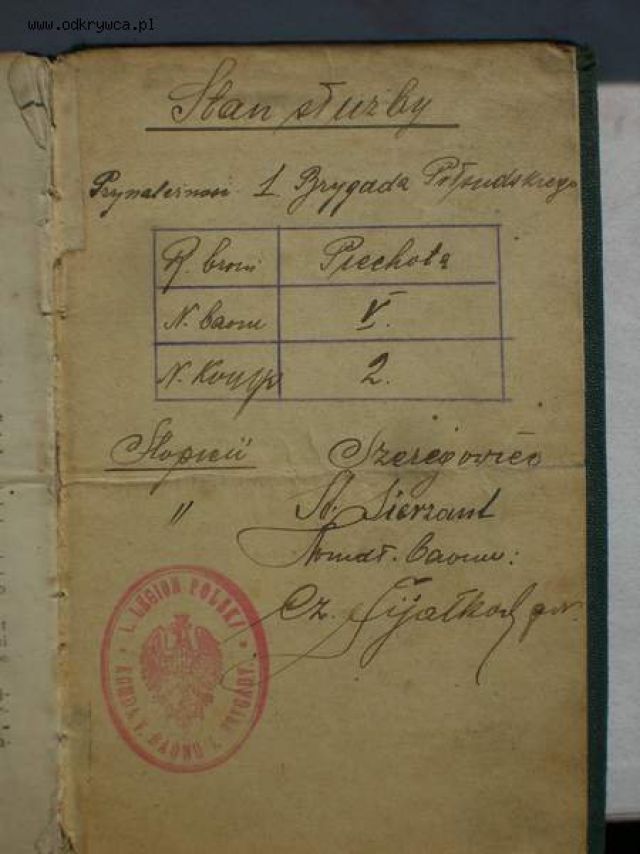 www.odkrywca.pl
Stan służby
Przynależność 1 Brygada Piłsudskiego
R. broni Piechota
N. baonu V.
N. Komp 2.
Stopień Szeregowiec
" St. Sierżant
Kmdt. baonu:
Cz. Fijałkowski
1. LEGION POLSKI
KOMDA V. BAONU I. BRYGADY.